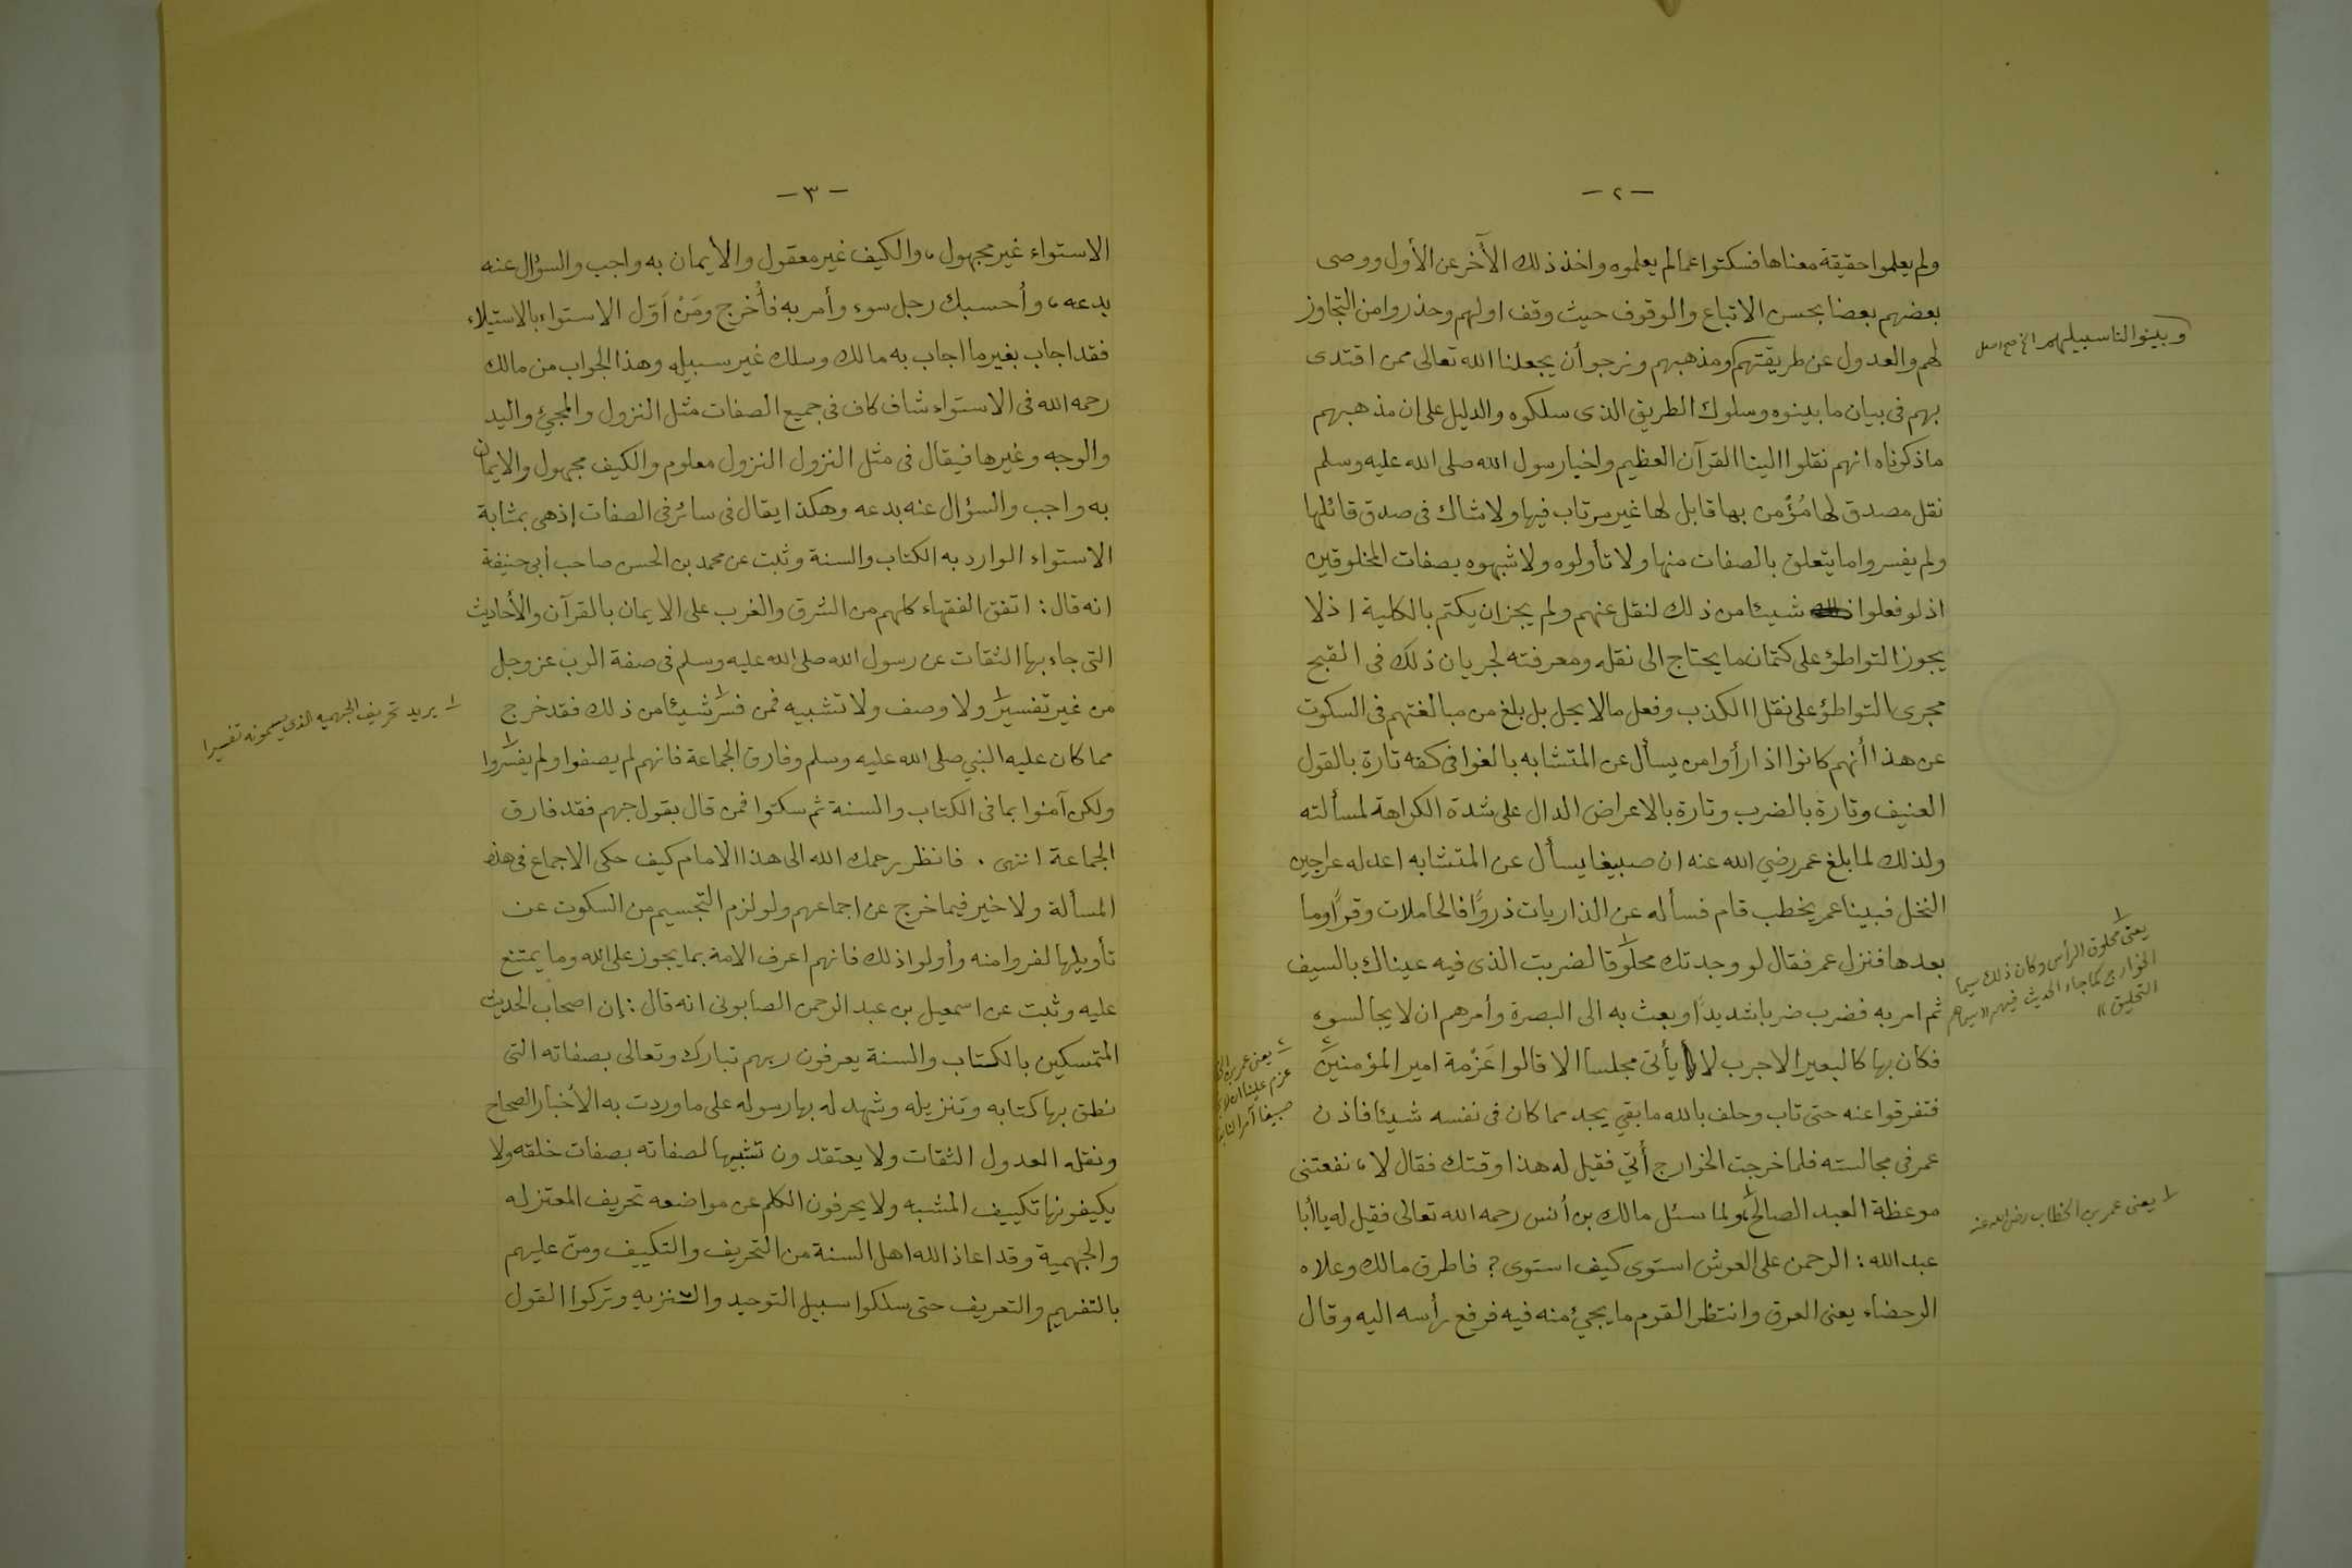 — ٢ —
ولم يعلموا حقيقة معناها فسكتوا عما لم يعلموه واخذ ذلك الآخر عن الأول ووصى
بعضهم بعضا بحسن الاتباع والوقوف حيث وقف اولهم وحذروا من التجاوز
لهم والعدول عن طريقتهم ومذهبهم ونرجو أن يجعلنا الله تعالى ممن اقتدى
بهم فى بيان ما بينوه وسلوك الطريق الذى سلكوه والدليل على ان مذهبهم
ما ذكرناه انهم نقلوا الينا القرآن العظيم واخبار رسول الله صلى الله عليه وسلم
نقل مصدق لها مُؤْمن بها قابل لها غير مرتاب فيها ولا شاك فى صدق قائلها
ولم يفسروا ما يتعلق بالصفات منها ولا تأولوه ولا شبهوه بصفات المخلوقين
اذ لو فعلوا شيئا من ذلك لنقل عنهم ولم يجز ان يكتم بالكلية اذ لا
يجوز التواطؤ على كتمان ما يحتاج الى نقله ومعرفته لجريان ذلك فى القبح
مجرى التواطؤ على نقل الكذب وفعل مالا يحل بل بلغ من مبالغتهم فى السكوت
عن هذا أنهم كانوا اذا رأوا من يسأل عن المتشابه بالغوا فى كفه تارة بالقول
العنيف وتارة بالضرب وتارة بالاعراض الدال على شدة الكراهة لمسألته
ولذلك لما بلغ عمر رضي الله عنه ان صبيغا يسأل عن المتشابه اعد له عراجين
النخل فبينا عمر يخطب قام فسأله عن الذاريات ذروًا فالحاملات وقرًا وما
بعدها فنزل عمر فقال لو وجدتك محلوقا لضربت الذى فيه عيناك بالسيف
ثم امر به فضرب ضربا شديدًا وبعث به الى البصرة وأمرهم ان لا يجالسوه
فكان بها كالبعير الاجرب لا يأتى مجلسا الا قالوا عَزْمة امير المؤمنين
فتفرقوا عنه حتى تاب وحلف بالله ما بقي يجد مما كان فى نفسه شيئا فاذن
عمر فى مجالسته فلما خرجت الخوارج أُتي فقيل له هذا وقتك فقال لا، نفعتنى
موعظة العبد الصالح، ولما سئل مالك بن أنس رحمه الله تعالى فقيل له يا أبا
عبد الله : الرحمن على العرش استوى كيف استوى؟ فاطرق مالك وعلاه
الرحضاء يعنى العرق وانتظر القوم ما يجئ منه فيه فرفع رأسه اليه وقال
وبينوا لنا سبيلهم الخ صح اصل
١ يعنى محلوق الرأس وكان ذلك سيما
الخوارج كما جاء الحديث فيهم «سيماهم
التحليق»
٢ يعنى عمر بن
عزم علينا ان لا
صبيغا
١ يعنى عمر بن الخطاب رضى الله عنه
— ٣ —
الاستواء غير مجهول، والكيف غير معقول والايمان به واجب والسؤال عنه
بدعه، وأحسبك رجل سوء وأمر به فأُخرج ومَنْ اَوّل الاستواء بالاستيلاء
فقد اجاب بغير ما اجاب به مالك وسلك غير سبيله وهذا الجواب من مالك
رحمه الله فى الاستواء شاف كاف فى جميع الصفات مثل النزول والمجيئ واليد
والوجه وغيرها فيقال فى مثل النزول النزول معلوم والكيف مجهول والايمان
به واجب والسؤال عنه بدعه وهكذا يقال فى سائر فى الصفات إذ هى بمثابة
الاستواء الوارد به الكتاب والسنة وثبت عن محمد بن الحسن صاحب أبى حنيفة
انه قال : اتفق الفقهاء كلهم من الشرق والغرب على الايمان بالقرآن والأحاديث
التى جاء بها الثقات عن رسول الله صلى الله عليه وسلم فى صفة الرب عز وجل
من غير تفسير ولا وصف ولا تشبيه فمن فسّر شيئا من ذلك فقد خرج
مما كان عليه النبي صلى الله عليه وسلم وفارق الجماعة فانهم لم يصفوا ولم يفسّروا
ولكن آمنوا بما فى الكتاب والسنة ثم سكتوا فمن قال بقول جهم فقد فارق
الجماعة انتهى . فانظر رحمك الله الى هذا الامام كيف حكى الاجماع فى هذه
المسألة ولا خير فيما خرج عن اجماعهم ولو لزم التجسيم من السكوت عن
تأويلها لفروا منه وأولوا ذلك فانهم اعرف الامة بما يجوز على الله وما يمتنع
عليه وثبت عن اسمعيل بن عبد الرحمن الصابونى انه قال : إن اصحاب الحديث
المتمسكين بالكتاب والسنة يعرفون ربهم تبارك وتعالى بصفاته التى
نطق بها كتابه وتنزيله وشهد له بها رسوله على ما وردت به الأخبار الصحاح
ونقله العدول الثقات ولا يعتقدون تشبيها لصفاته بصفات خلقه ولا
يكيفونها تكييف المشبه ولا يحرفون الكلم عن مواضعه تحريف المعتزله
والجهمية وقد اعاذ الله اهل السنة من التحريف والتكييف ومنّ عليهم
بالتفهيم والتعريف حتى سلكوا سبيل التوحيد والتنزيه وتركوا القول
١ يريد تحريف الجهميه الذى يسمونه تفسيرا